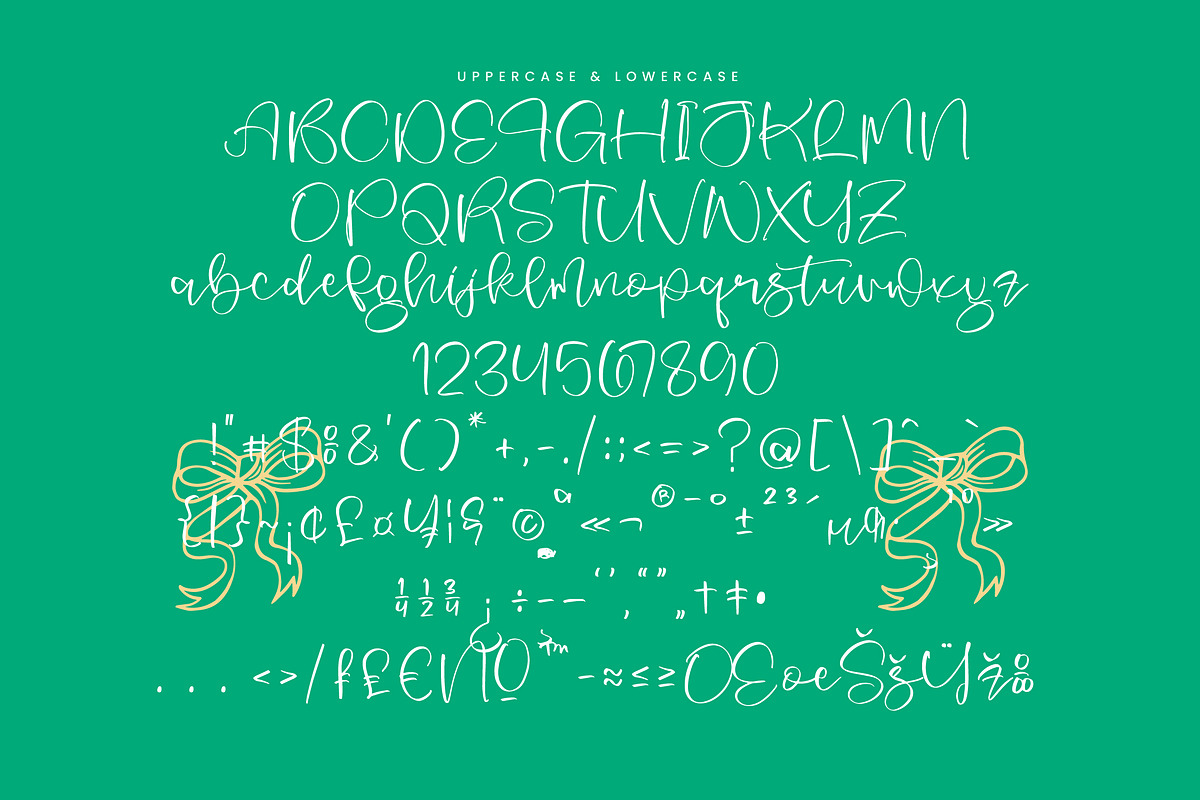 UPPERCASE & LOWERCASE
ABCDEFGHIJKLMN
OPQRSTUVWXYZ
abcdefghijklmnopqrstuvwxyz
1234567890
!"#$%&'()*+,-./:;<=>?@[\]^_`
{|}~¡¢£¤¥¦§¨©ª«¬®¯°±²³´µ¶·¸¹º»
¼½¾¿÷–—‘’‚“”„†‡•
...‹›⁄₣₤€№™−≈≤≥ŒœŠšŸž‰